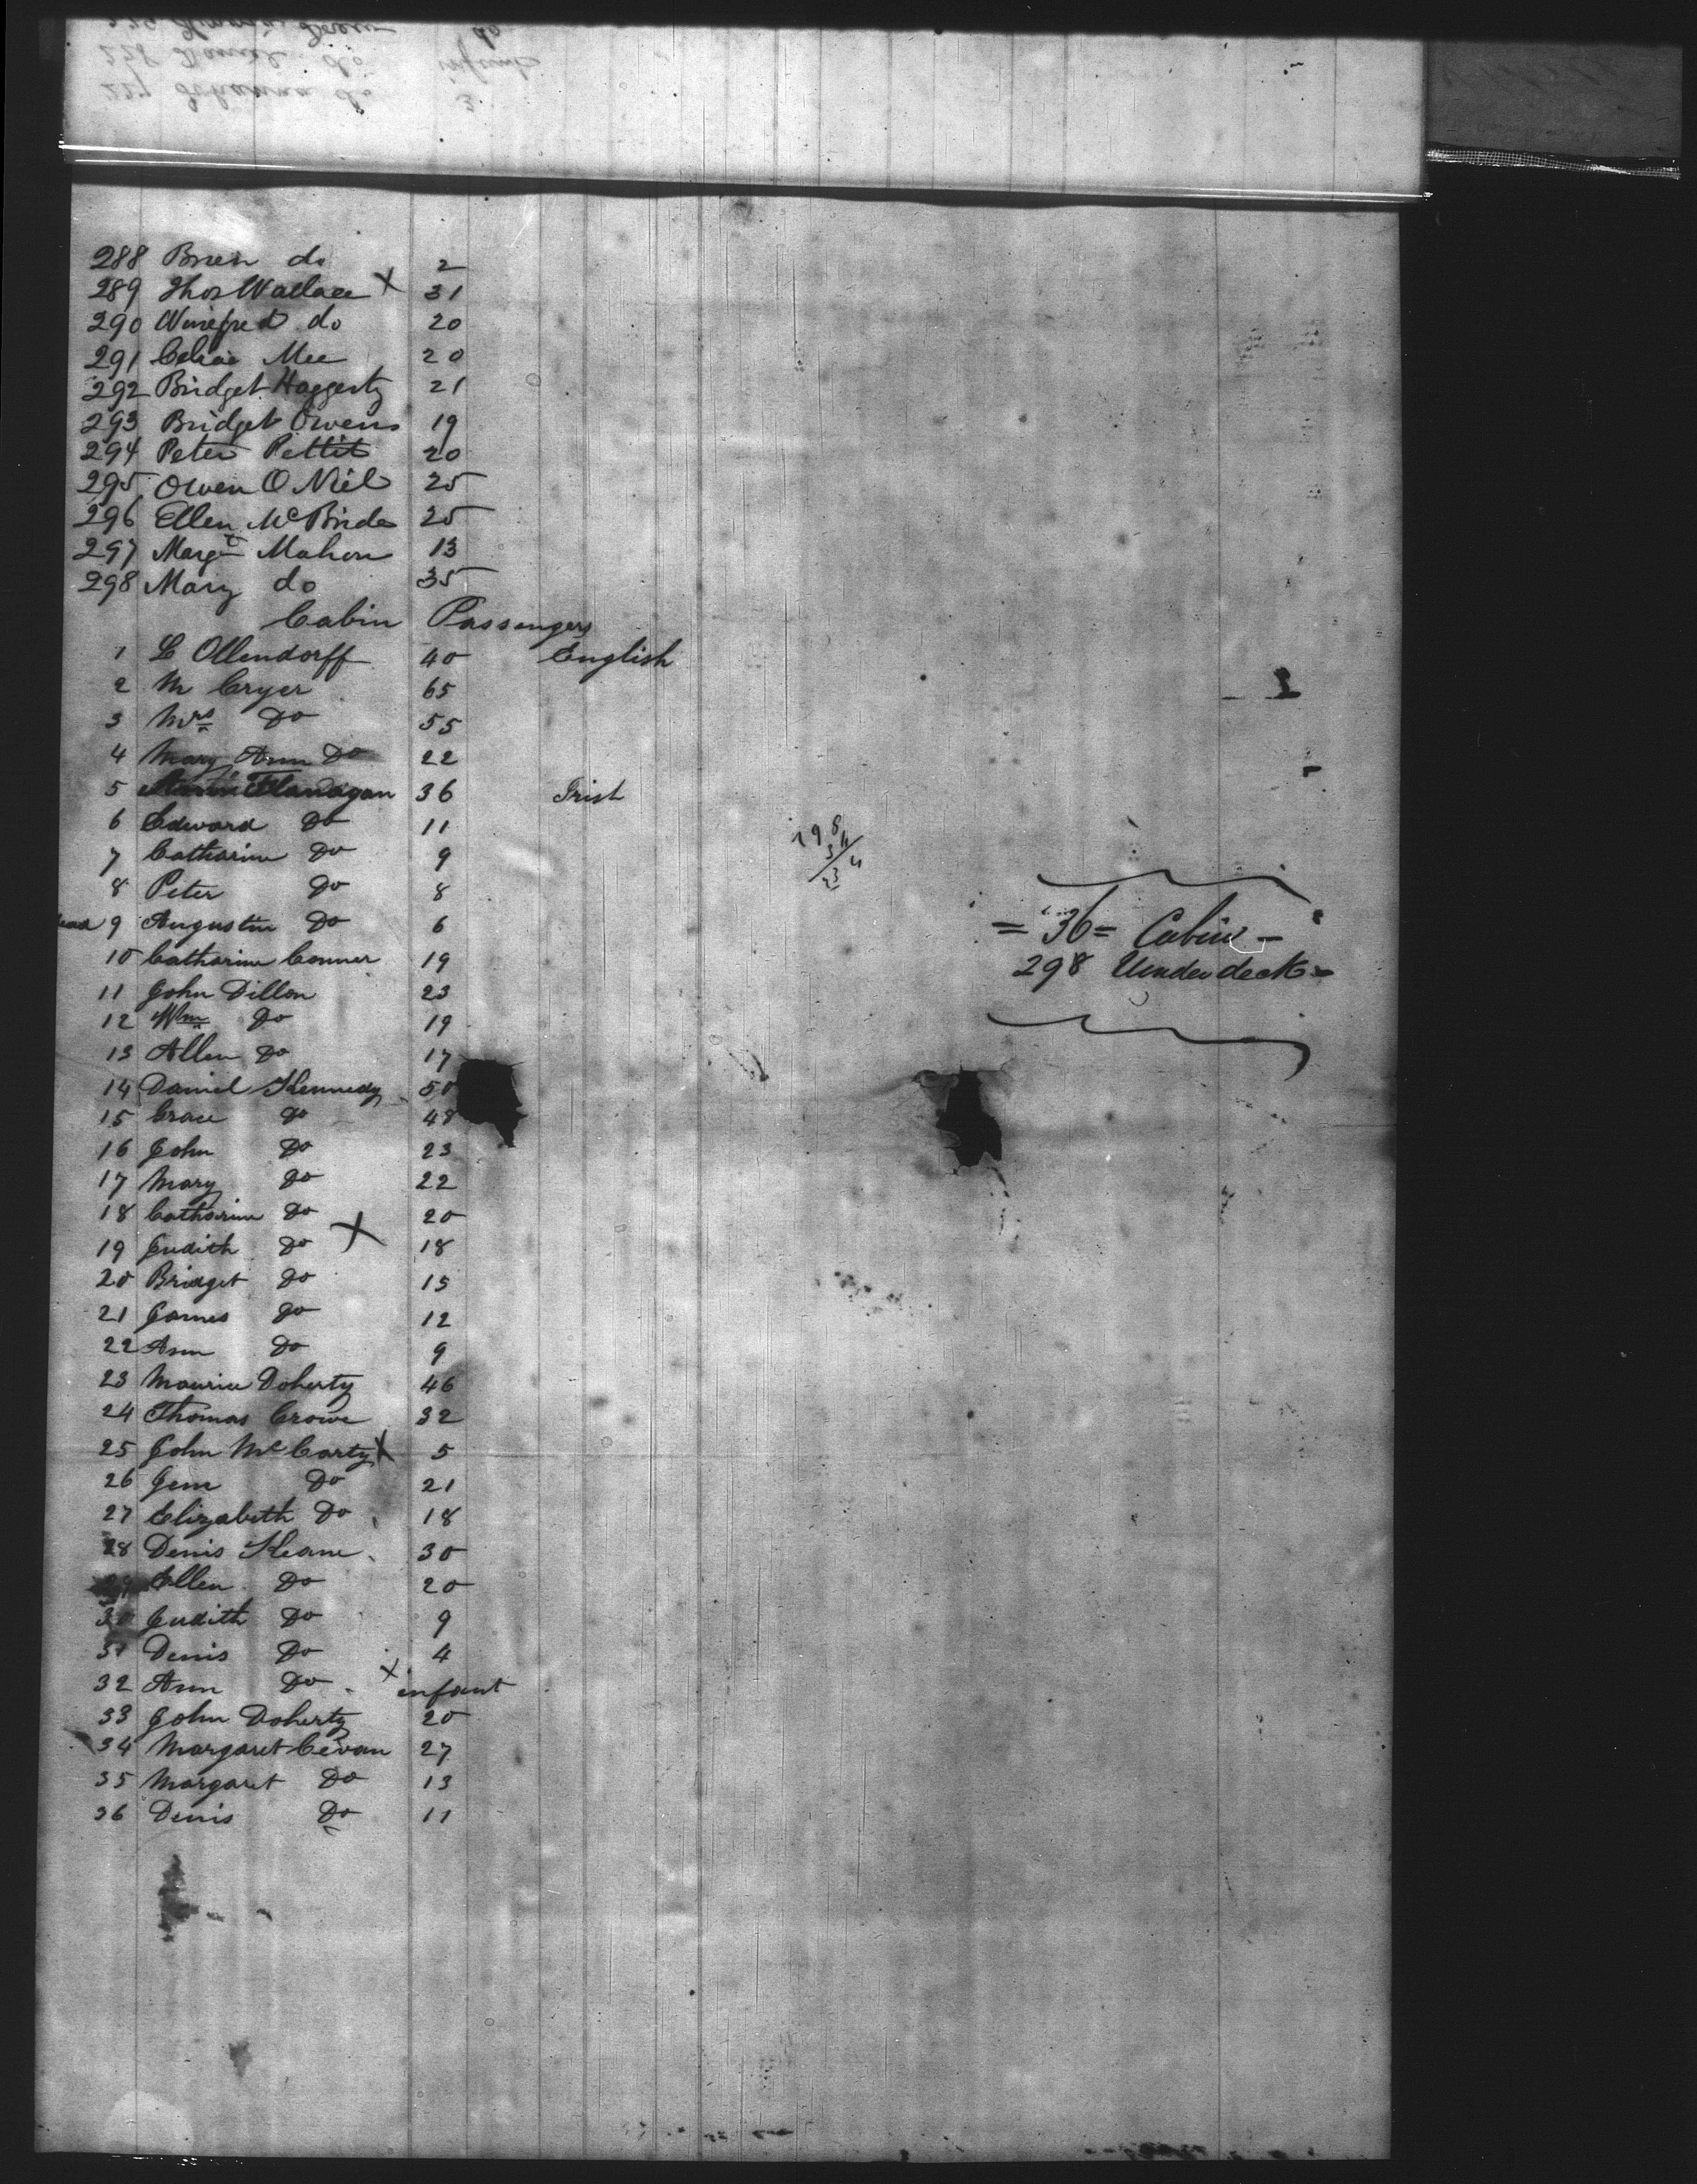 288 Brien do 2
289 Thos Wallace X 31
290 Winefred do 20
291 Celiae Mee 20
292 Bridget Haggerty 21
293 Bridget Owens 19
294 Peter Pettit 20
295 Owen O Niel 25
296 Ellen McBride 25
297 Margt Mahon 13
298 Mary do 35
Cabin Passengers
1 L Ollendorff 40 English
2 M Cryer 65
3 Mrs Do 55
4 Mary Ann Do 22
5 Flanagan 36 Irish
6 Edward Do 11
7 Catharine Do 9
8 Peter Do 8
9 Augustin Do 6
10 Catharine Conner 19
11 John Dillon 23
12 Wm Do 19
13 Allen Do 17
14 Daniel Kennedy 50
15 Grace Do 48
16 John Do 23
17 Mary Do 22
18 Catharine Do 20
19 Judith Do X 18
20 Bridget Do 15
21 James Do 12
22 Ann Do 9
23 Maurice Doherty 46
24 Thomas Crowe 32
25 John McCarty X 5
26 Jem Do 21
27 Elizabeth Do 18
28 Denis Keane 30
29 Ellen Do 20
30 Judith Do 9
31 Denis Do 4
32 Ann Do X infant
33 John Doherty 20
34 Margaret 27
35 Margaret Do 13
36 Denis Do 11
= 36 = Cabin
298 Underdeck